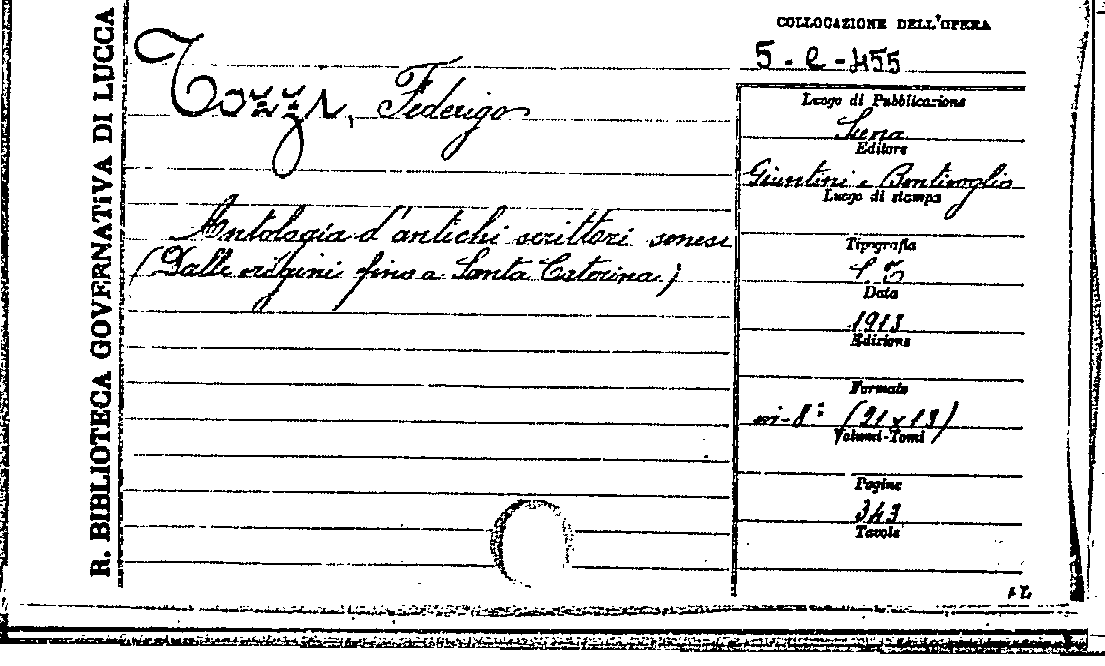 R. BIBLIOTECA GOVERNATIVA DI LUCCA
Tozzi, Federigo
Antologia d'antichi scrittori senesi
(Dalle origini fino a Santa Caterina.)
COLLOCAZIONE DELL'OPERA
5 - e - 455
Luogo di Pubblicazione
Siena
Editore
Giuntini e Bentivoglio
Luogo di stampa
Tipografia
S. T
Data
1913
Edizione
Formato
in-8° (21 x 13)
Volumi-Tomi
Pagine
343
Tavole